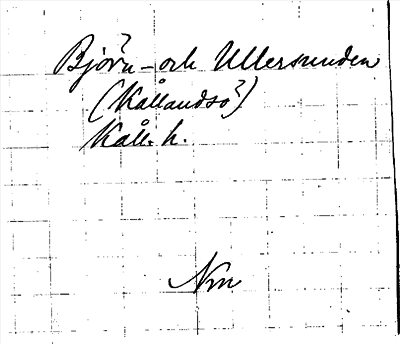 Björn- och Ullersunden
(Kållandsö)
Kåll. h.
Nm